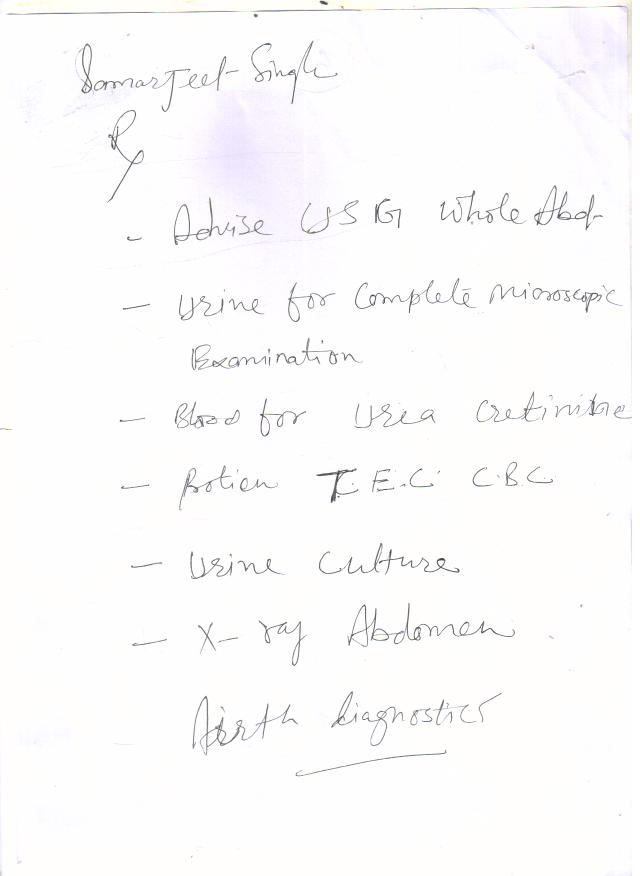 Samarjeet Singh
Rx
- Advise USG Whole Abd-
- Urine for Complete Microscopic
Examination
- Blood for Urea Cretinine
- Protien T.E.C. C.B.C.
- Urine Culture
- X-ray Abdomen
diagnostics